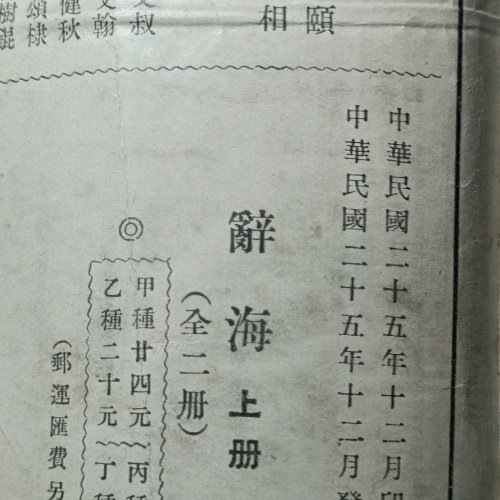 頤
相
叔
翰
健秋
頌棣
樹錕
中華民國二十五年十二月印
中華民國二十五年十二月發
辭海上册
(全二册)
◎
甲種廿四元 丙種
乙種二十元 丁種
(郵運匯費另